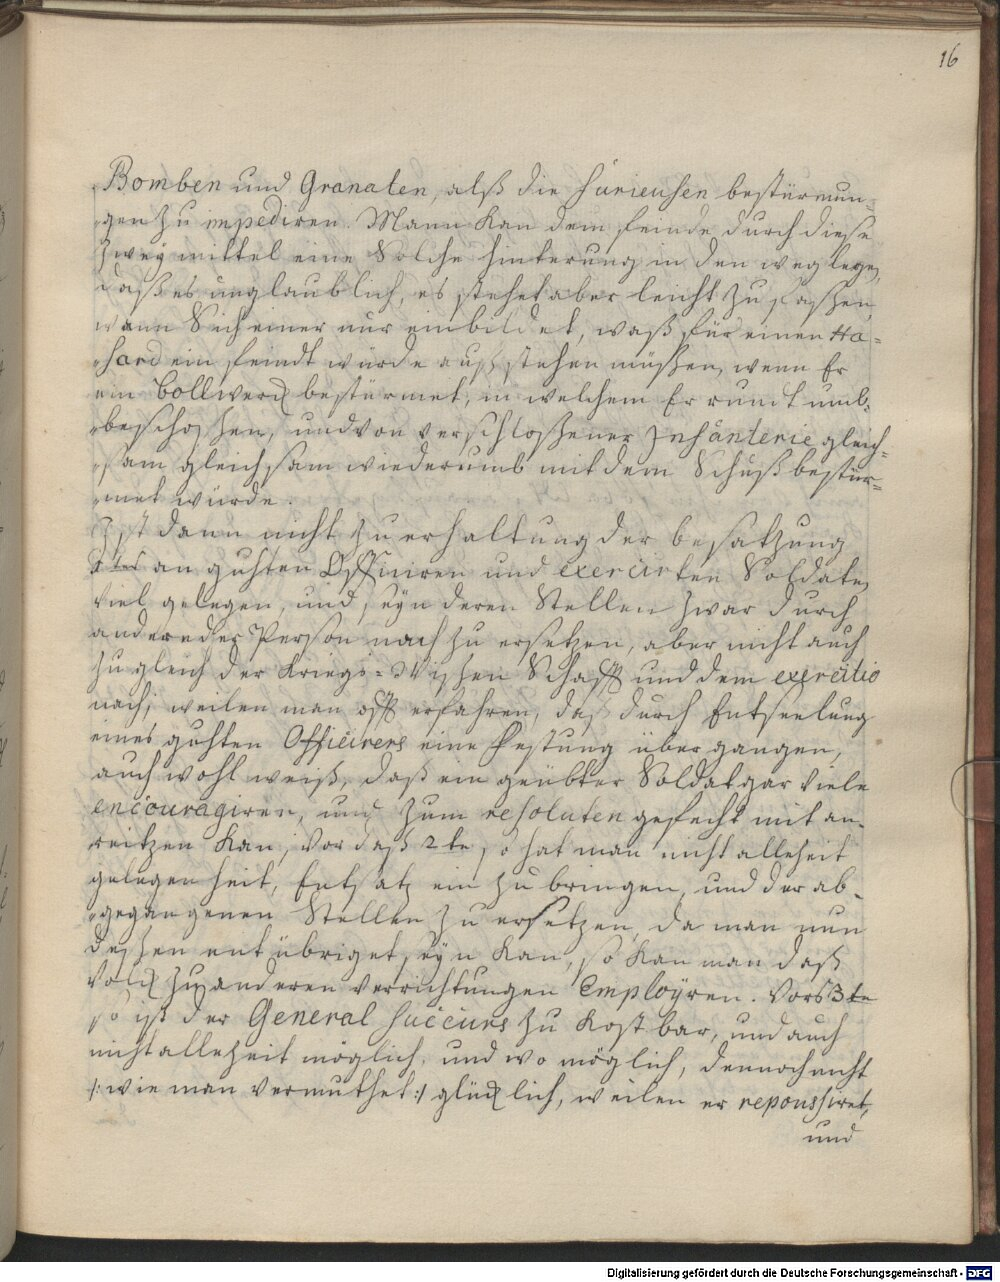 16
Bomben und Granaten, alß die furieusen bestürmun-
gen zu impediren. Mann kan dem feinde durch diese
zwey mittel eine Solche hinterung in den weg legen,
daß es unglaublich, es stehet aber leicht zu faßen,
wann Sich einer nur einbildet, waß für einen Ha-
hard ein feindt würde auß stehen müßen, wenn Er
ein bollwerck bestürmet, in welchem Er rundt umb-
beschoßen, und von verschloßener Infanterie gleich-
sam gleichsam wiederumb mit dem Schuß bestür-
met würde.
Ist dann nicht zu erhaltung der besatzung
an guhten Officiren und exercirten Soldaten
viel gelegen, und seyn deren Stellen zwar durch
andere der Person nach zu ersetzen, aber nicht auch
zugleich der Kriegs-Wißenschafft und dem exercitio
nach, weilen man offt erfahren, daß durch Entseelung
eines guhten Officirers eine Festung übergangen,
auch wohl weiß, daß ein geübter Soldat gar viele
encouragiren, und zum resoluten gefecht mit an-
reitzen kan, Vor daß 2te, so hat man nicht allezeit
gelegenheit, Entsatz ein zu bringen, und der ab-
gegangenen Stellen zu ersetzen, da man nun
deßen entübriget seyn kan, so kan man daß
Volck zu anderen verrichtungen employren. Vors 3te
so ist der General Succurs zu kostbar, und auch
nicht allezeit möglich, und wo möglich, dennoch nicht
/: wie man vermuthet :/ glücklich, weilen er repoussiret,
und
Digitalisierung gefördert durch die Deutsche Forschungsgemeinschaft - DFG